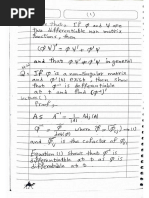 (1)
that, IF φ and ψ are
two differentiable nxn matrix
functions, then
(φψ)' = φψ' + φ'ψ
and that φψ' ≠ ψ'φ in general
Q: IF φ is a nonsingular matrix
and φ'(t) exist, then show
that φ⁻¹ is differentiable
at t and find (φ⁻¹)'
Proof:
As A⁻¹ =
where
is the cofactor of
Equation (1) shows that φ⁻¹ is
differentiable at t as φ is
differentiable at t.